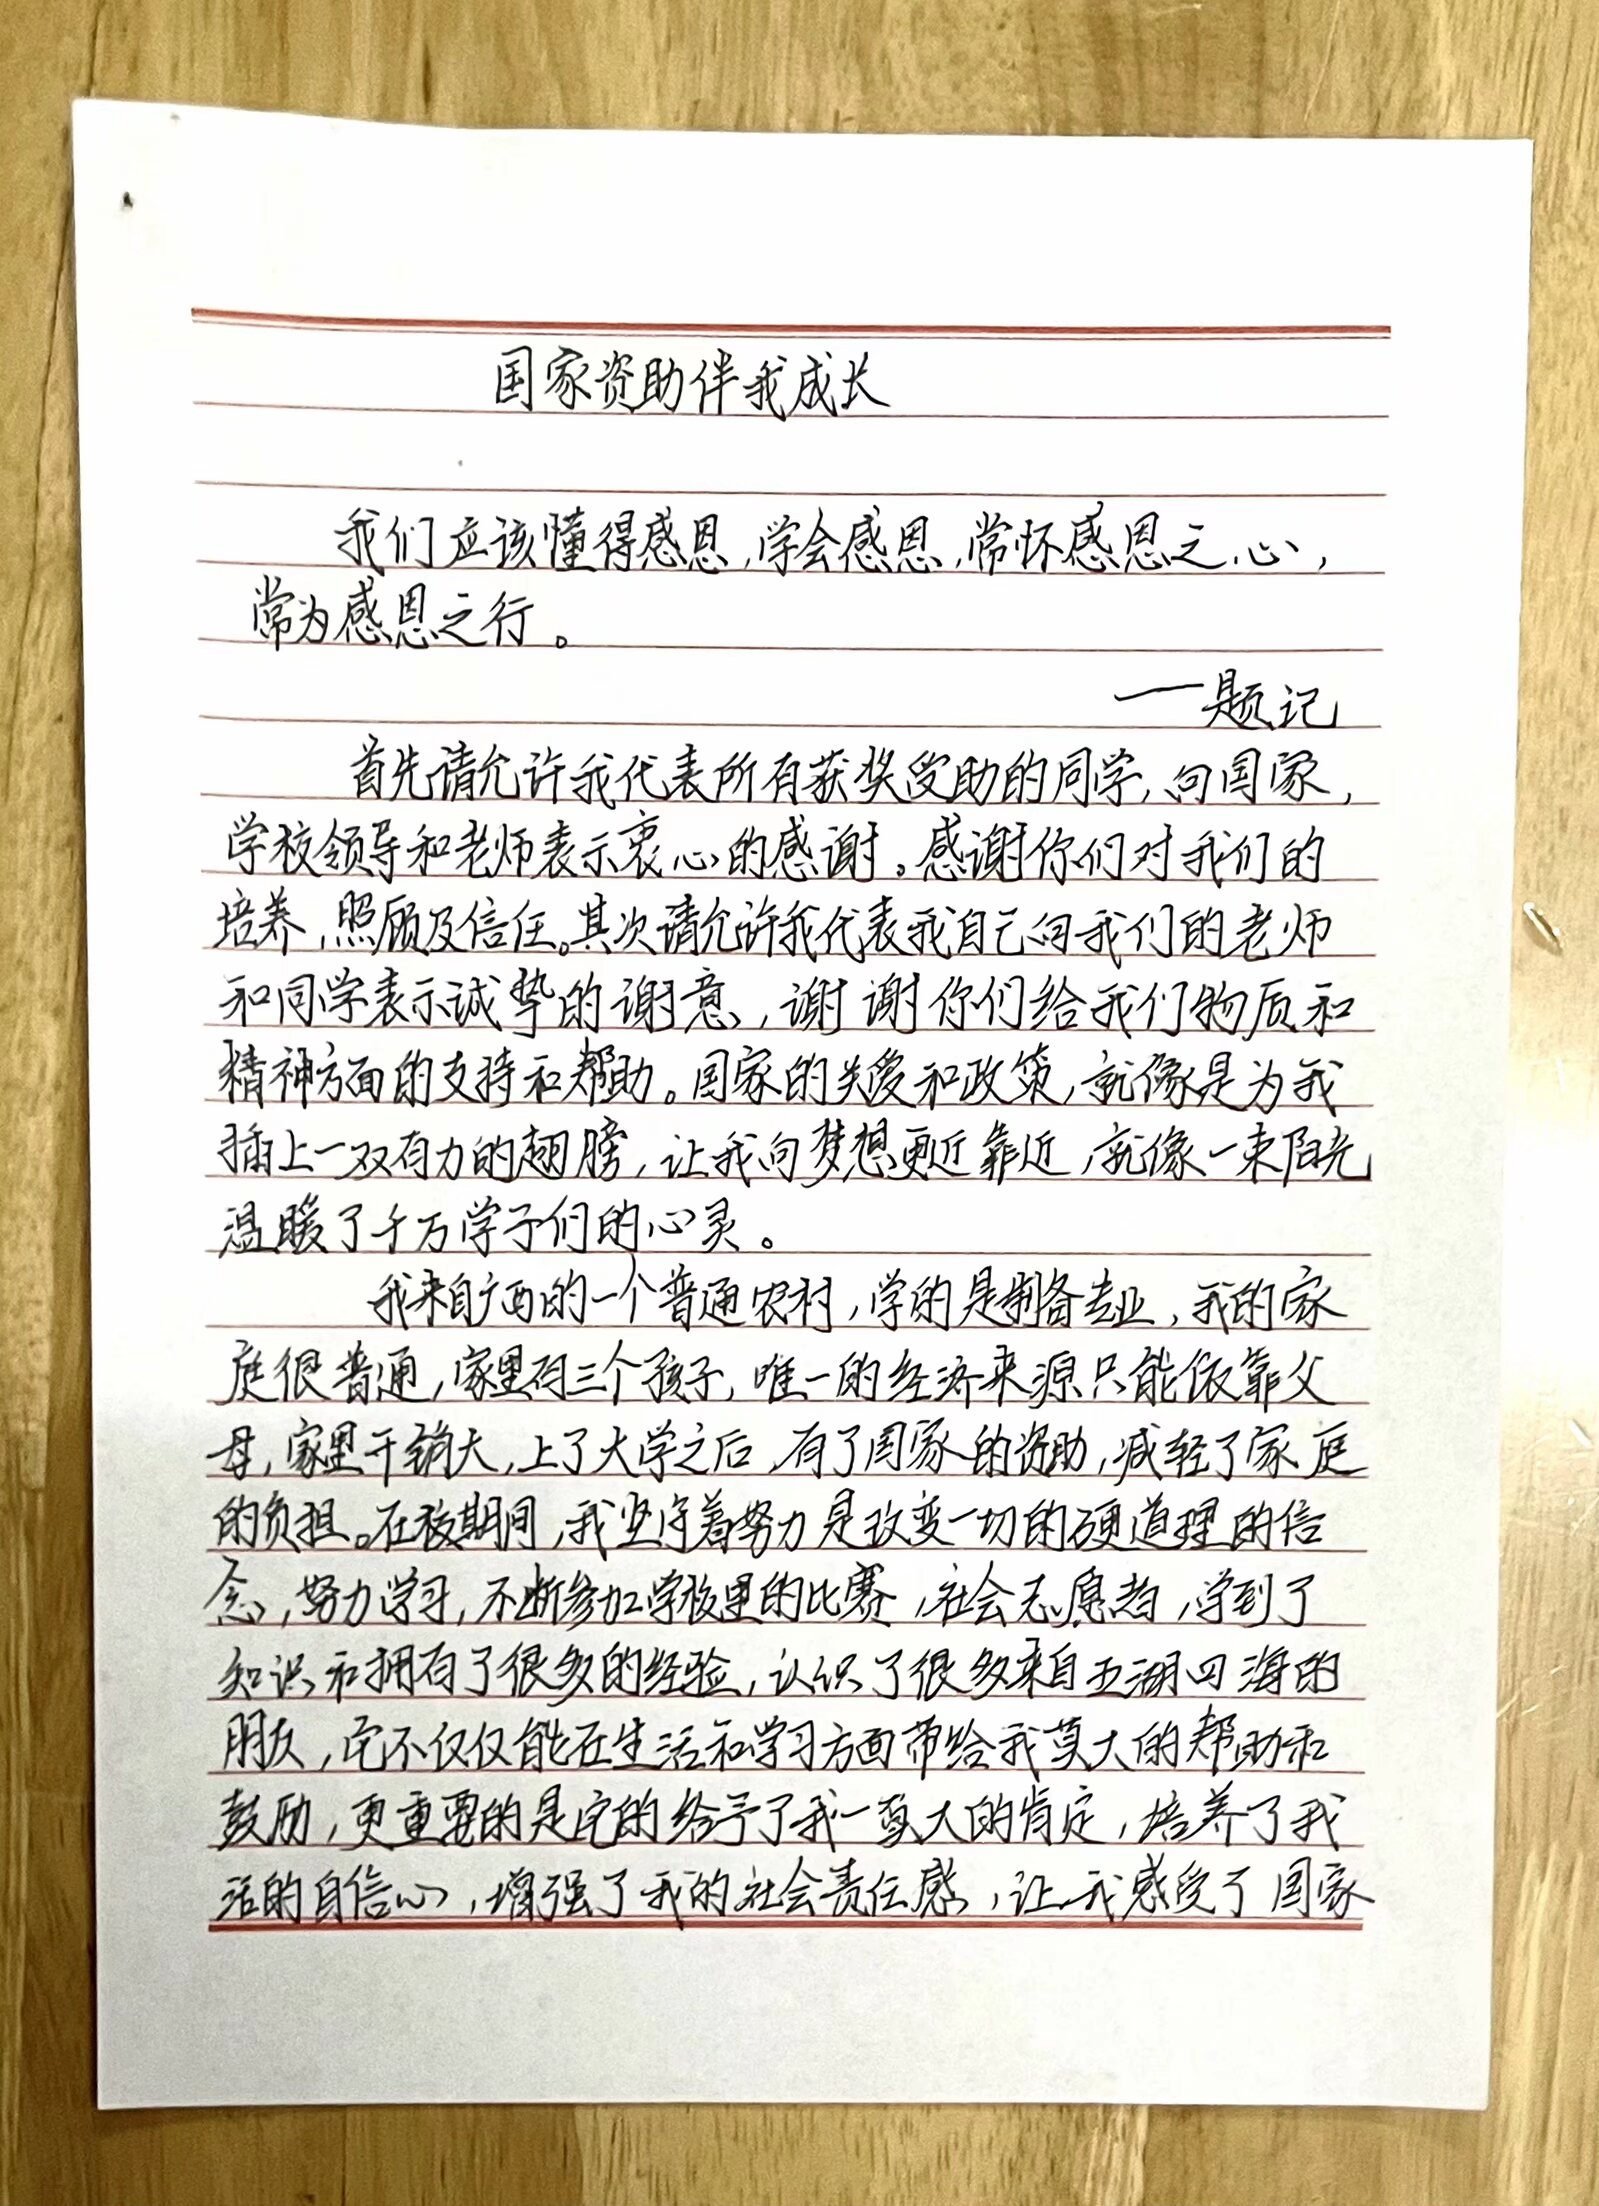 国家资助伴我成长
我们应该懂得感恩,学会感恩,常怀感恩之心,
常为感恩之行。
——题记
首先请允许我代表所有获奖受助的同学,向国家,
学校领导和老师表示衷心的感谢。感谢你们对我们的
培养,照顾及信任。其次请允许我代表我自己向我们的老师
和同学表示诚挚的谢意,谢谢你们给我们物质和
精神方面的支持和帮助。国家的关爱和政策,就像是为我
插上一双有力的翅膀,让我向梦想更近靠近,就像一束阳光
温暖了千万学子们的心灵。
我来自广西的一个普通农村,学的是制备专业,我的家
庭很普通,家里有三个孩子,唯一的经济来源只能依靠父
母,家里开销大,上了大学之后,有了国家的资助,减轻了家庭
的负担。在校期间,我坚守着努力是改变一切的硬道理的信
念,努力学习,不断参加学校里的比赛,社会志愿者,学到了
知识和拥有了很多的经验,认识了很多来自五湖四海的
朋友,它不仅仅能在生活和学习方面带给我莫大的帮助和
鼓励,更重要的是它的给予了我一莫大的肯定,培养了我
活的自信心,增强了我的社会责任感,让我感受了国家